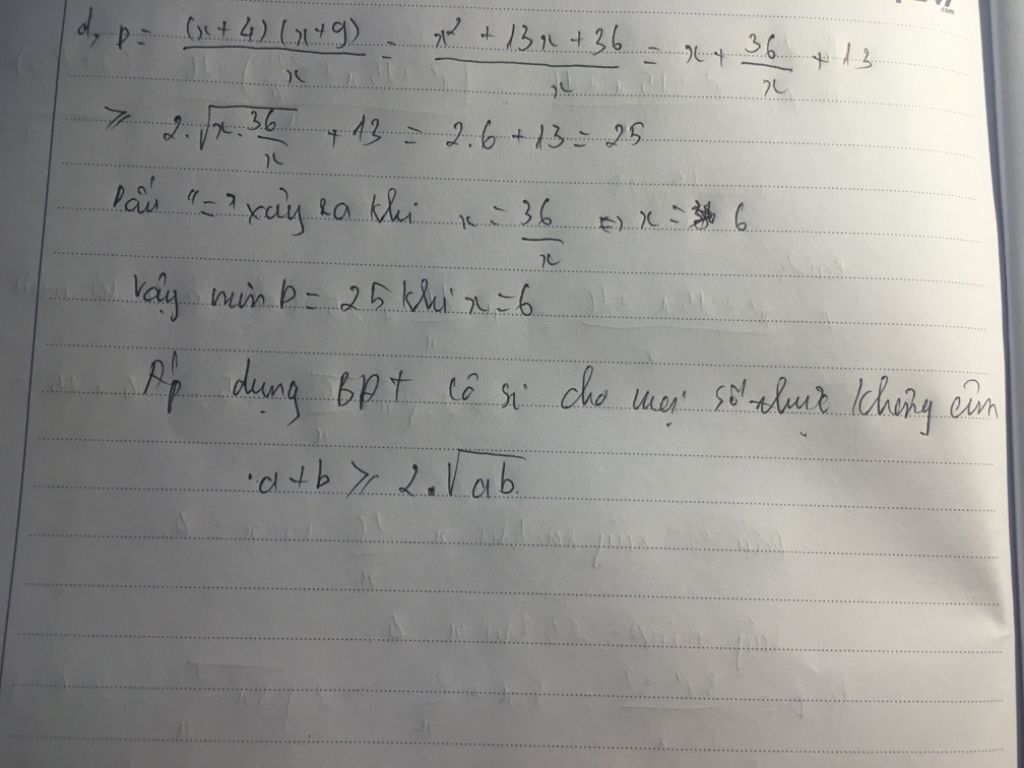 d, P = (x+4)(x+9)/x = x² + 13x + 36/x = x + 36/x + 13
≥ 2.√x.36/x + 13 = 2.6 + 13 = 25
Dấu "=" xảy ra khi x = 36/x ⇔ x = 6
Vậy min P = 25 khi x = 6
Áp dụng BĐT cô si cho mọi số thực không âm
a + b ≥ 2.√ab